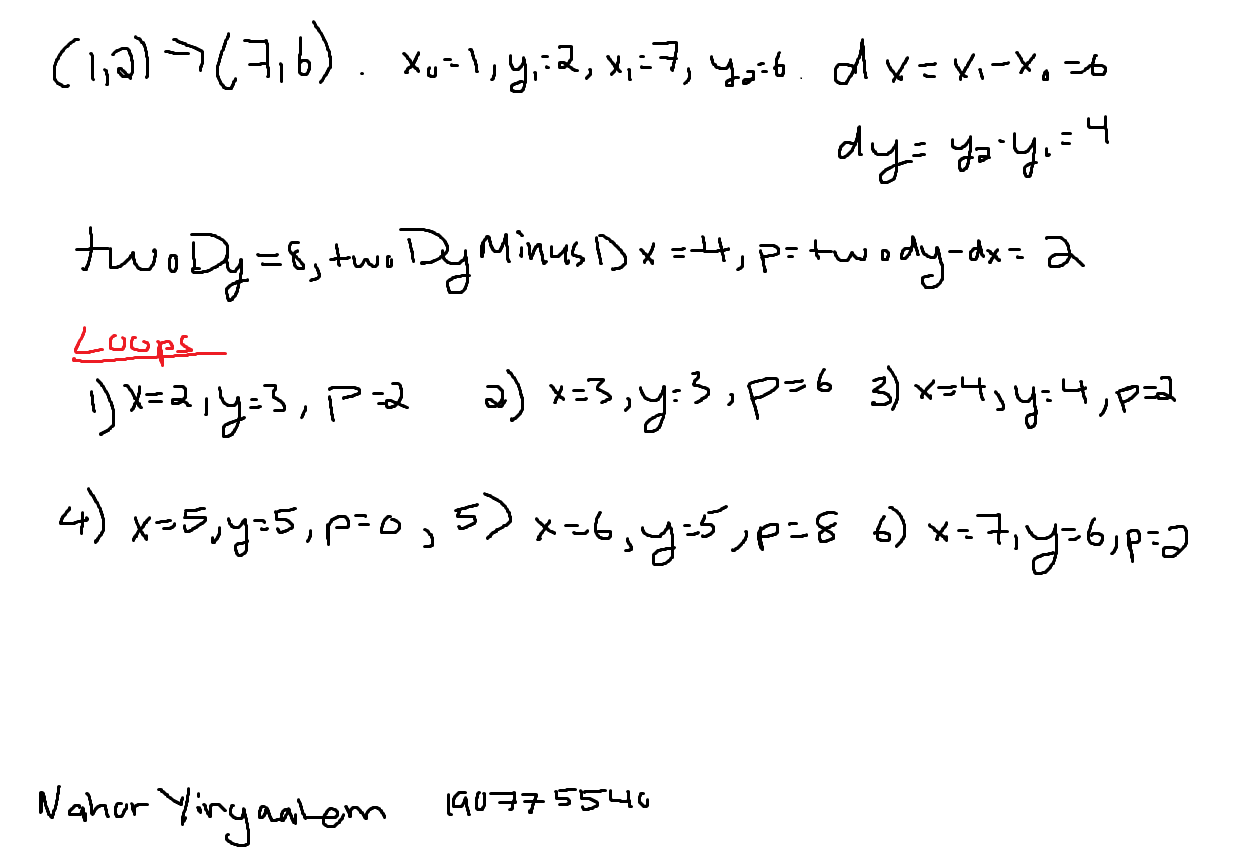 (1,2) → (7,6). x₀=1, y₁=2, x₁=7, y₂=6. dx = x₁-x₀ =6
dy = y₂-y₁ = 4
twoDy=8, twoDyMinusDx =-4, p= twody-dx= 2
Loops
1) x=2, y=3, P=2 2) x=3, y=3, p=6 3) x=4, y=4, p=2
4) x=5, y=5, p=0, 5) x=6, y=5, p=8 6) x=7, y=6, p=2
Nahor Yirgaalem 190775540